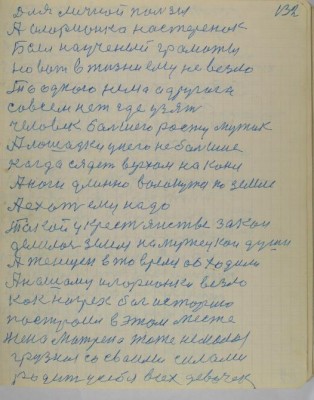 132
для личной ползы
А иларионко настеренок
был научений грамоты
но вот в жизни ему не везло
То одного нема а другога
совсем нет где узят
человек балшего росту мужик
А лошадки у него не балшие
когда сядет верхом на кони
А ноги длинно волокутца по земле
А ахот ему надо
Такой у крестянстве закон
делили землю на мужецкои души
А женщен в то время обходили
А нашому илорионко везло
как на грех бог историю
построил в этом месте
жена матрена тоже немалая
грузная со своими силами
родит у себя всех девочек